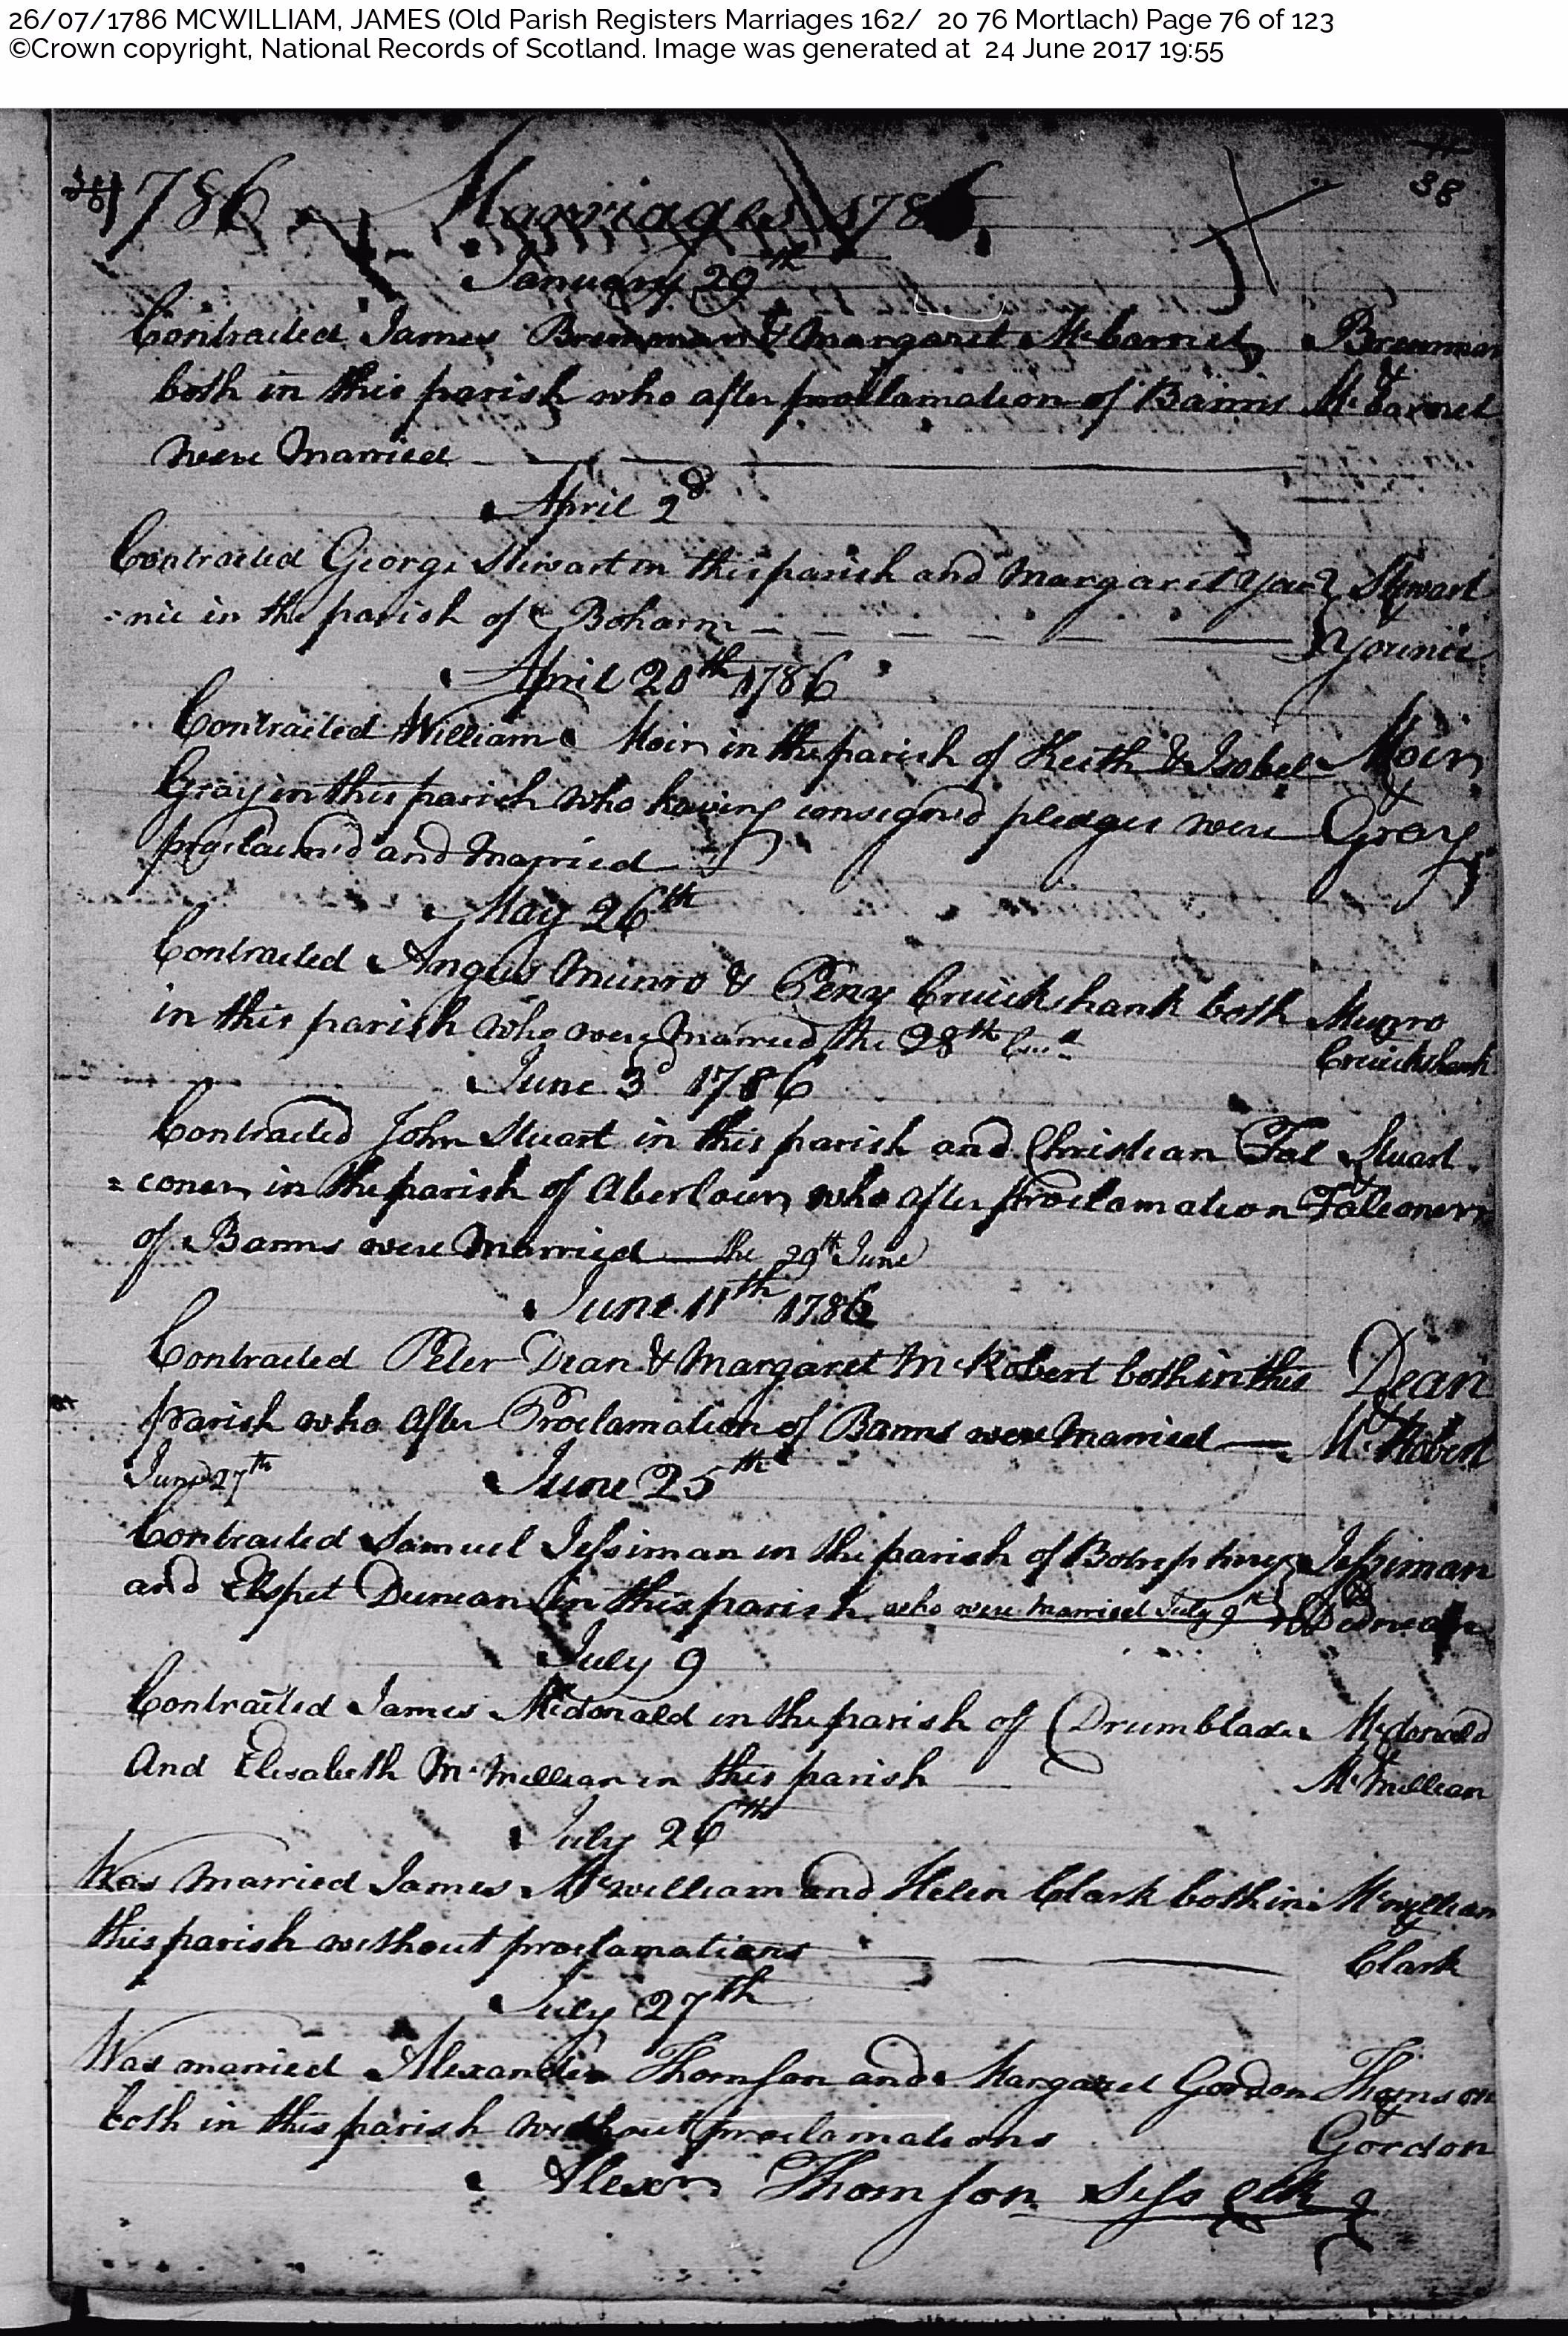 26/07/1786 MCWILLIAM, JAMES (Old Parish Registers Marriages 162/ 20 76 Mortlach) Page 76 of 123
©Crown copyright, National Records of Scotland. Image was generated at 24 June 2017 19:55
38
1786 Marriages 1786
January 29th
Contracted James Bremmar & Margaret McBarnet Bremmar
both in this parish who after proclamation of Banns & McBarnet
were Married
April 2d
Contracted George Stewart in this parish and Margaret You Stewart
=nie in the parish of Boharm & Younie
April 20th 1786
Contracted William Moir in the parish of Keith & Isobel Moir
Gray in this parish who having consignd pledges were & Gray
proclaim'd and Married
May 26th
Contracted Angus Munro & Peny Cruickshank both Munro
in this parish who were Married the 28th & Cruickshank
June 3d 1786
Contracted John Stuart in this parish and Christian Fal Stuart
=coner in the parish of Aberlour who after proclamation & Falconer
of Banns were Married the 29th June
June 11th 1786
Contracted Peter Dean & Margaret McRobert both in this Dean
parish who after Proclamation of Banns were Married & McRobert
June 27th June 25th
Contracted Samuel Jessiman in the parish of Botriphny Jessiman
and Elspet Duncan in this parish who were Married July 9th & Duncan
July 9
Contracted James Mcdonald in the parish of Drumblade Mcdonald
And Elisabeth McMillian in this parish & McMillian
July 26th
Was Married James Mcwilliam and Helen Clark both in Mcwilliam
this parish without proclamations & Clark
July 27th
Was married Alexander Thomson and Margaret Gordon Thomson
both in this parish without proclamations & Gordon
Alexr Thomson Sess Clk